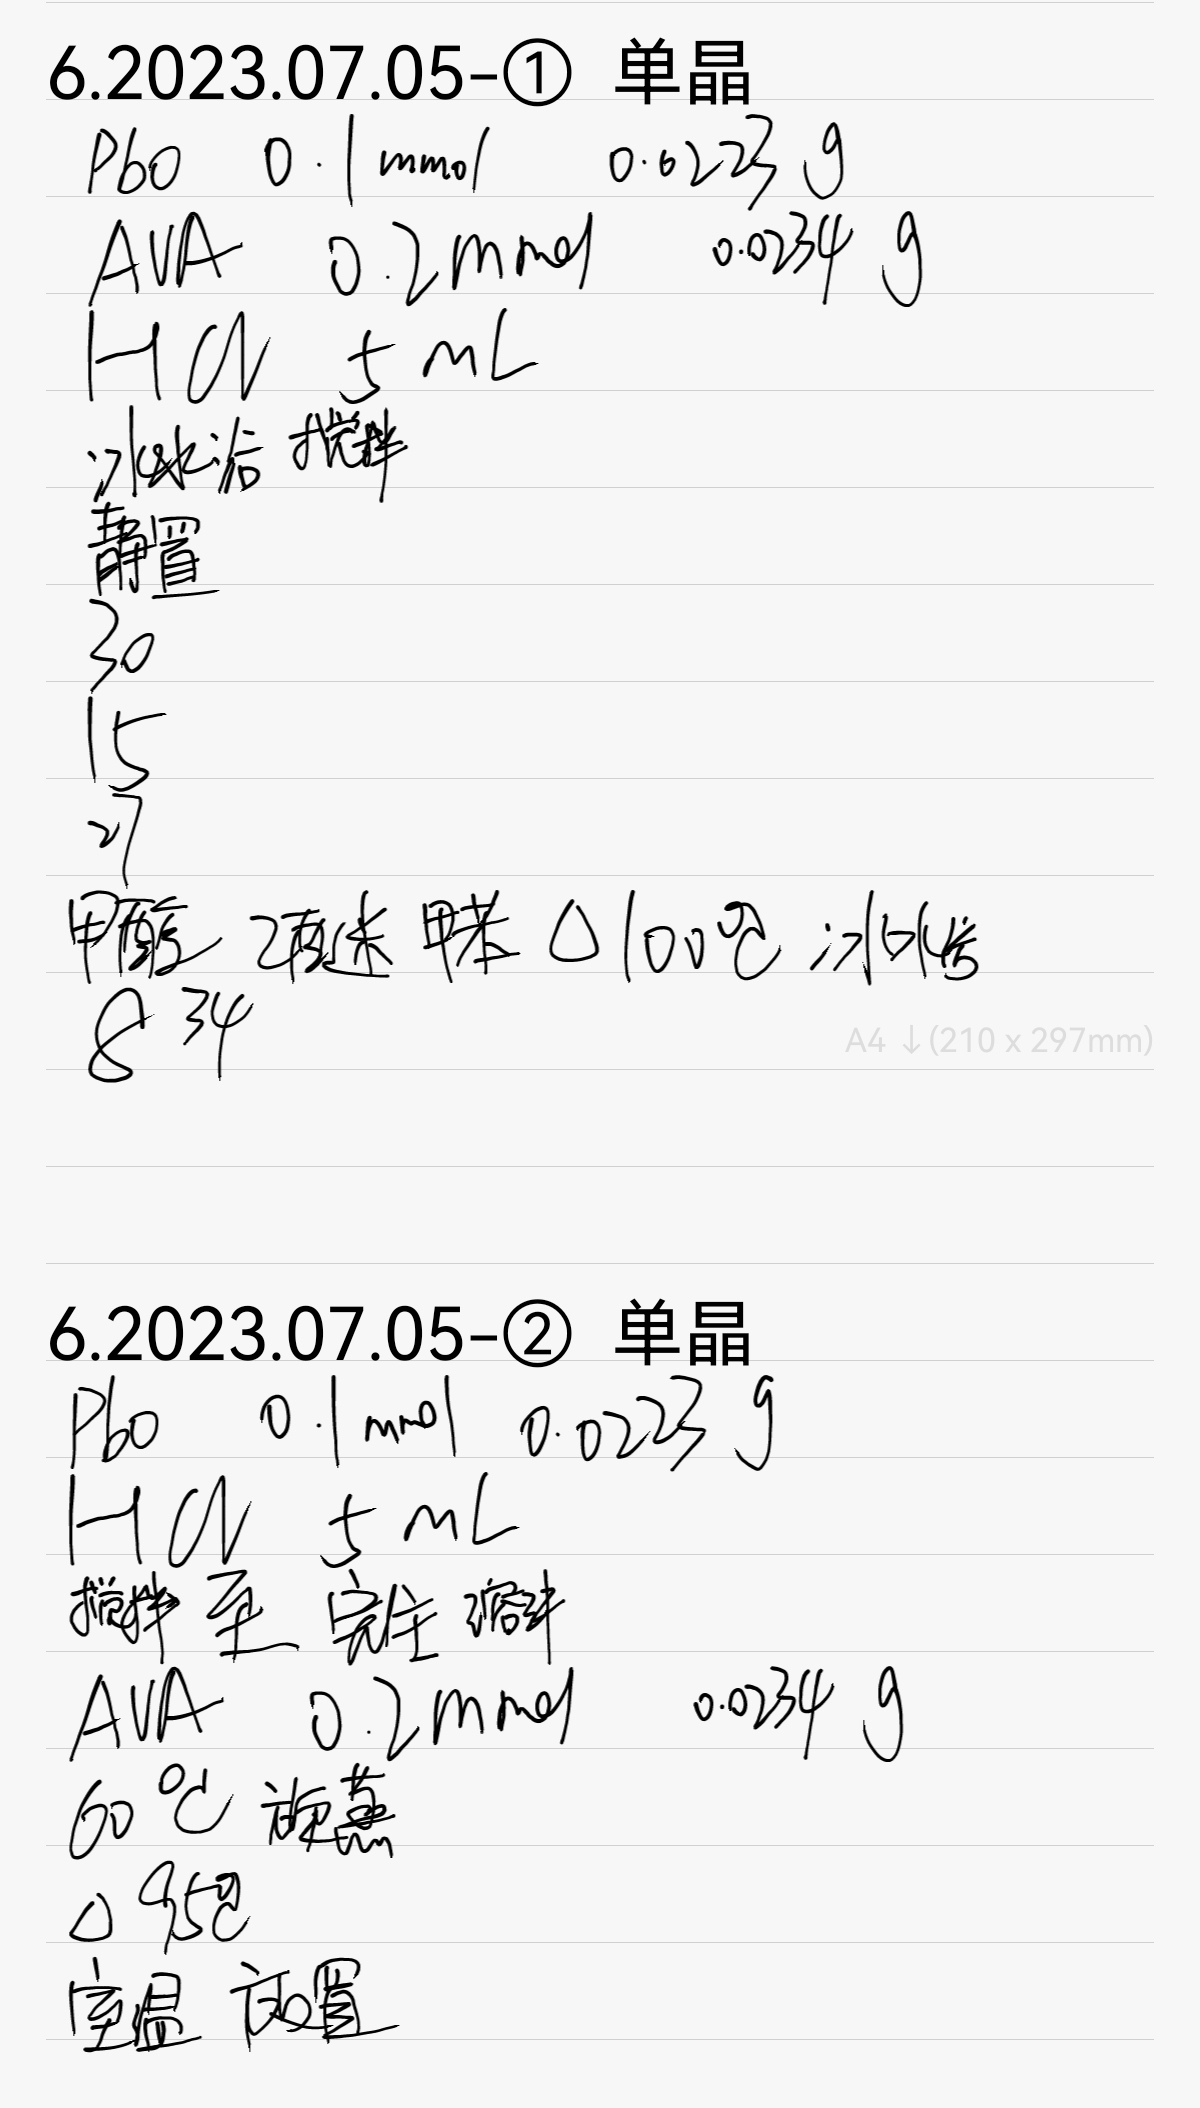 6.2023.07.05-① 单晶
PbO 0.1 mmol 0.0223 g
AVA 0.2 mmol 0.0234 g
HCl 5 mL
冰水浴 搅拌
静置
30
15
27
甲醇 乙醚 甲苯 △100℃ 冰水浴
8 34
A4 ↓(210 x 297mm)
6.2023.07.05-② 单晶
PbO 0.1 mmol 0.0223 g
HCl 5 mL
搅拌 至 完全 溶解
AVA 0.2 mmol 0.0234 g
60℃ 旋蒸
△ 95℃
室温 放置